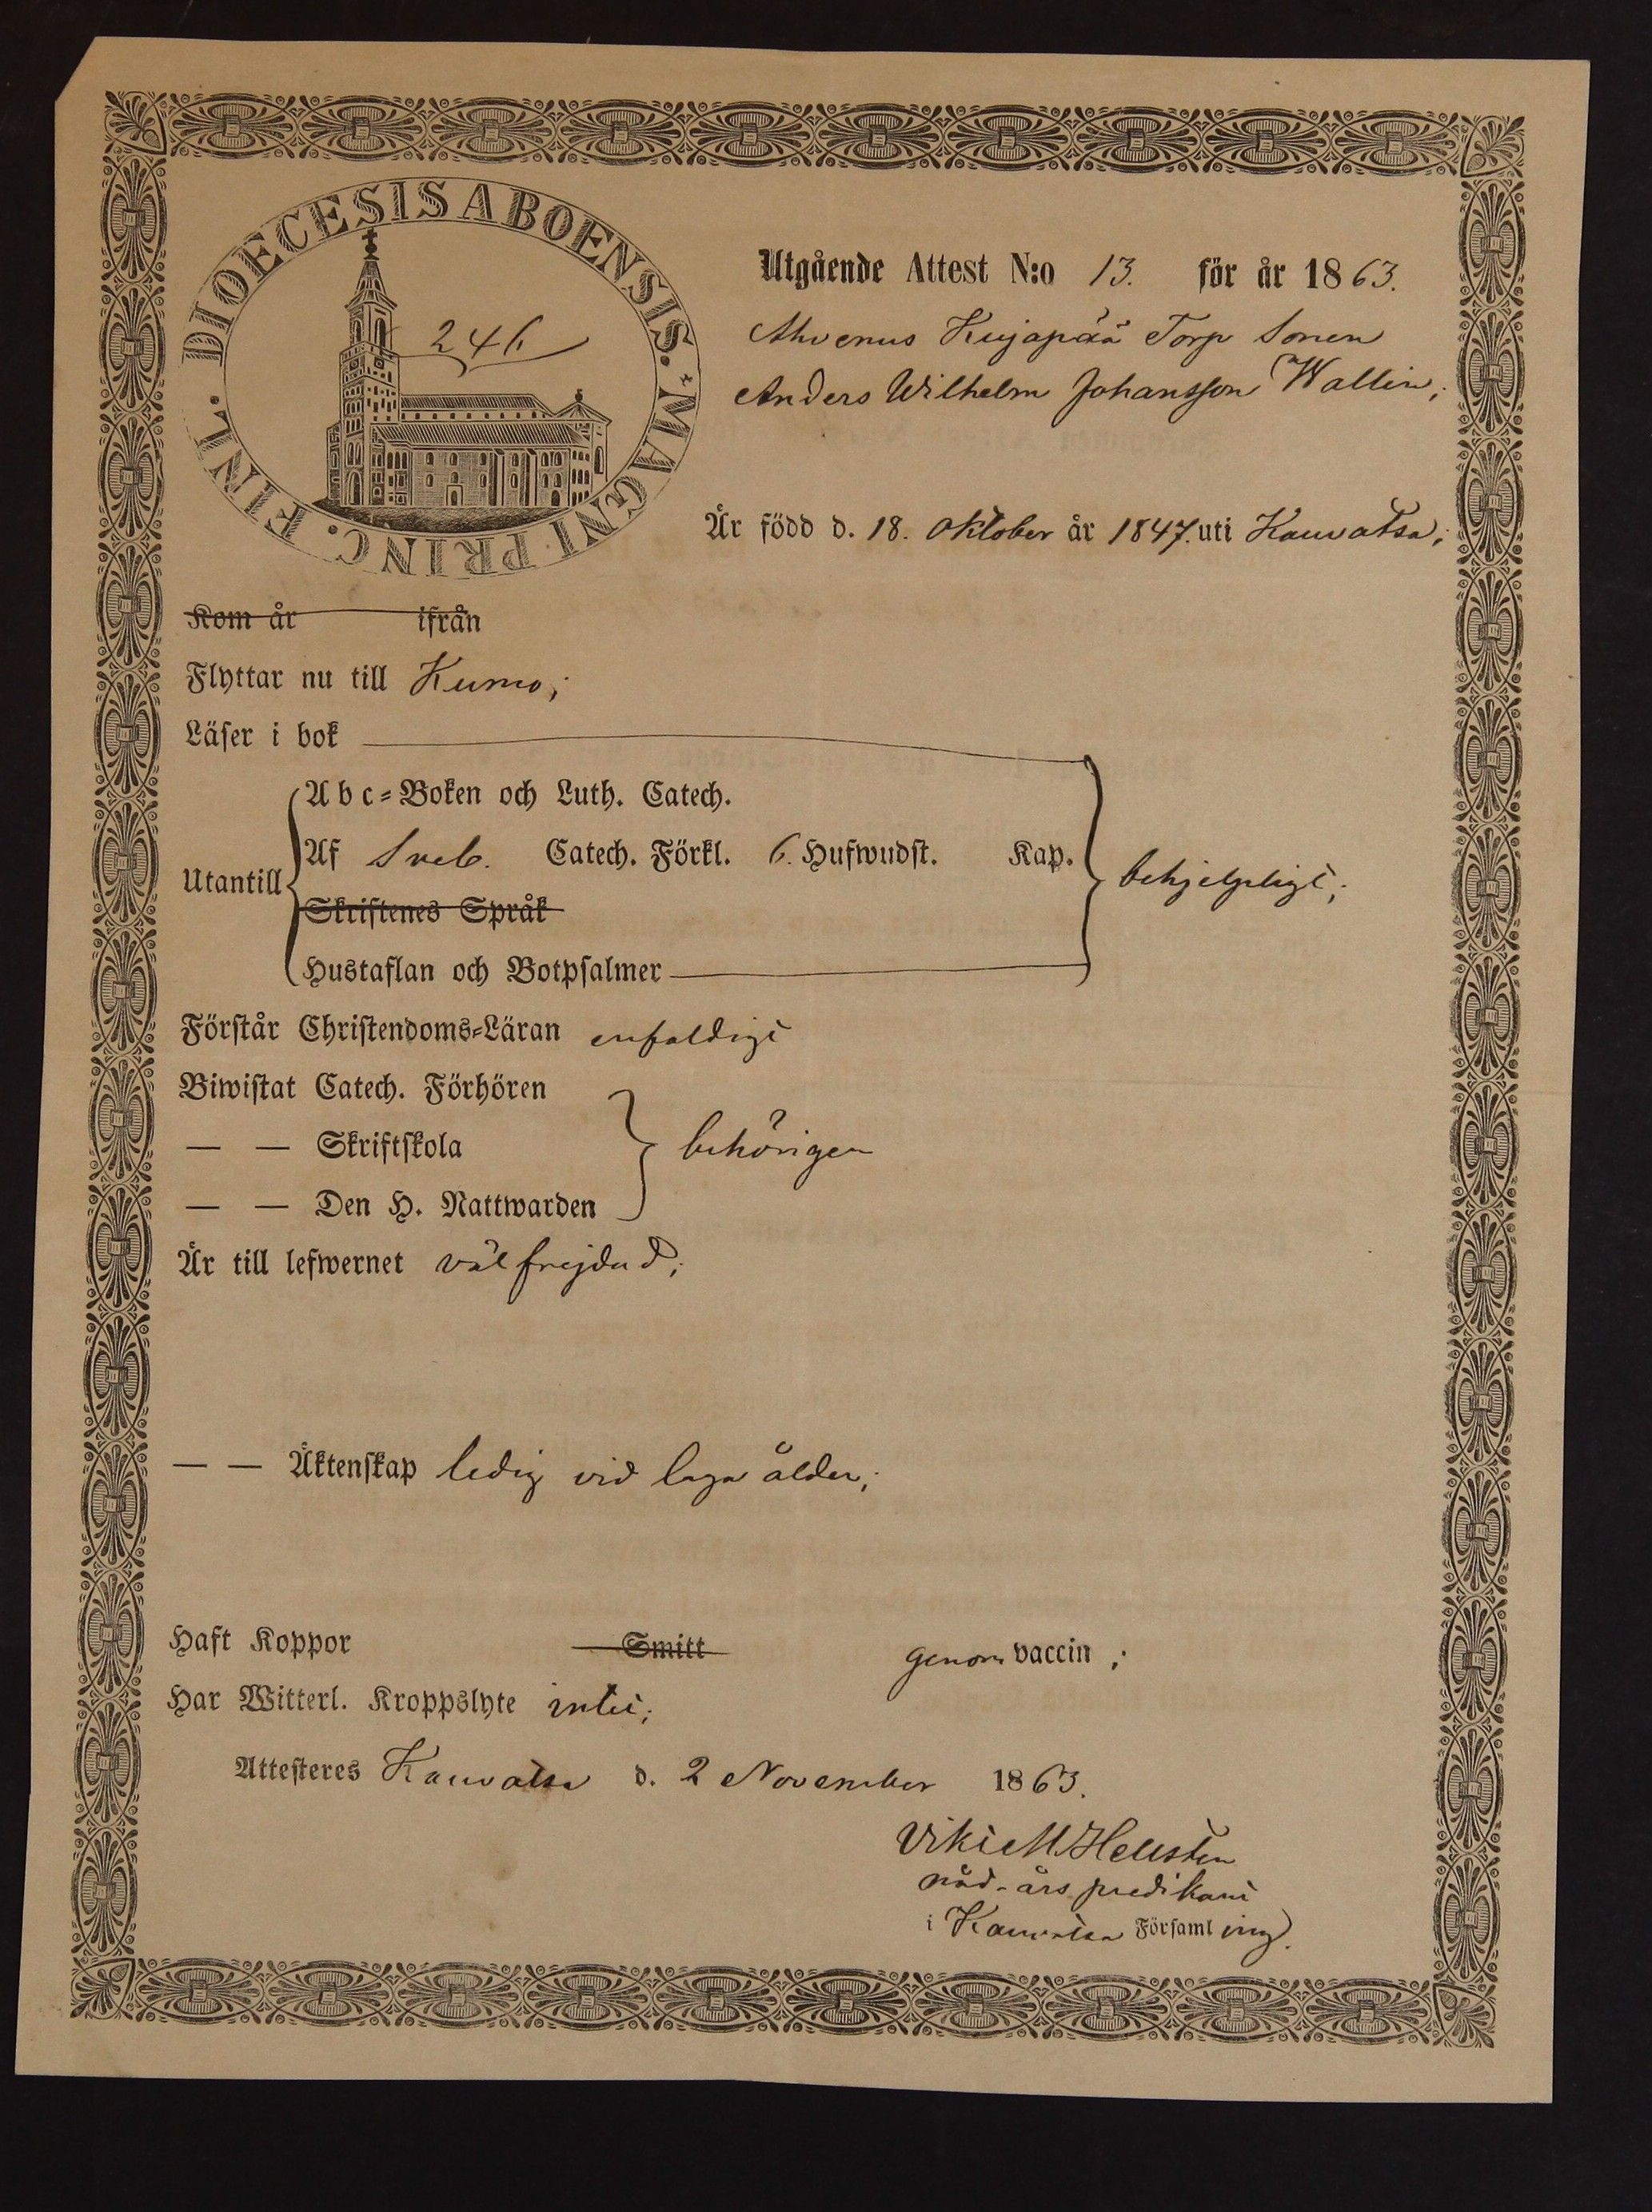 DIOECESIS ABOENSIS. * MAGNI PRINC. FINL.
246
Utgående Attest N:o 13. för år 1863.
Ahvenus Kujapää Torp Sonen
Anders Wilhelm Johansson Wallin;
Är född d. 18. Oktober år 1847. uti Kauvatsa;
Kom år ifrån
Flyttar nu till Kumo;
Läser i bok
Abc=Boken och Luth. Catech.
Utantill Af Sveb. Catech. Förkl. 6. Hufwudst. Kap. behjelpligt;
Skriftenes Språk
Hustaflan och Botpsalmer
Förstår Christendoms=Läran enfaldigt
Biwistat Catech. Förhören
— — Skriftskola behörigen
— — Den H. Nattwarden
Är till lefwernet väl frejdad;
— — Äktenskap ledig vid laga ålder;
Haft Koppor Smitt genom vaccin;
Har Witterl. Kroppslyte intet;
Attesteres Kauvatsa d. 2 November 1863.
Hellsten
nåd-års predikant
i Kauvatsa Församling.